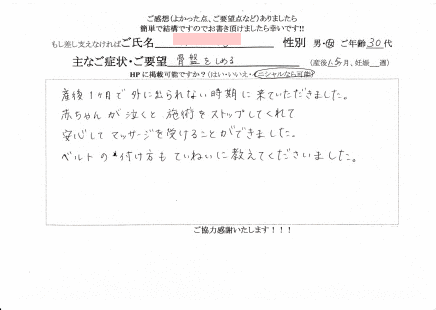 ご感想(よかった点、ご要望点など)ありましたら
簡単で結構ですのでお書き頂けましたら幸いです!!
もし差し支えなければご氏名 性別 男・女 ご年齢30代
主なご症状・ご要望 骨盤をしめる (産後1.5月、妊娠 週)
HPに掲載可能ですか?(はい・いいえ・イニシャルなら可能)
産後1ヶ月で外に出られない時期に来ていただきました。
赤ちゃんが泣くと施術をストップしてくれて
安心してマッサージを受けることができました。
ベルトの付け方もていねいに教えてくださいました。
ご協力感謝いたします!!!